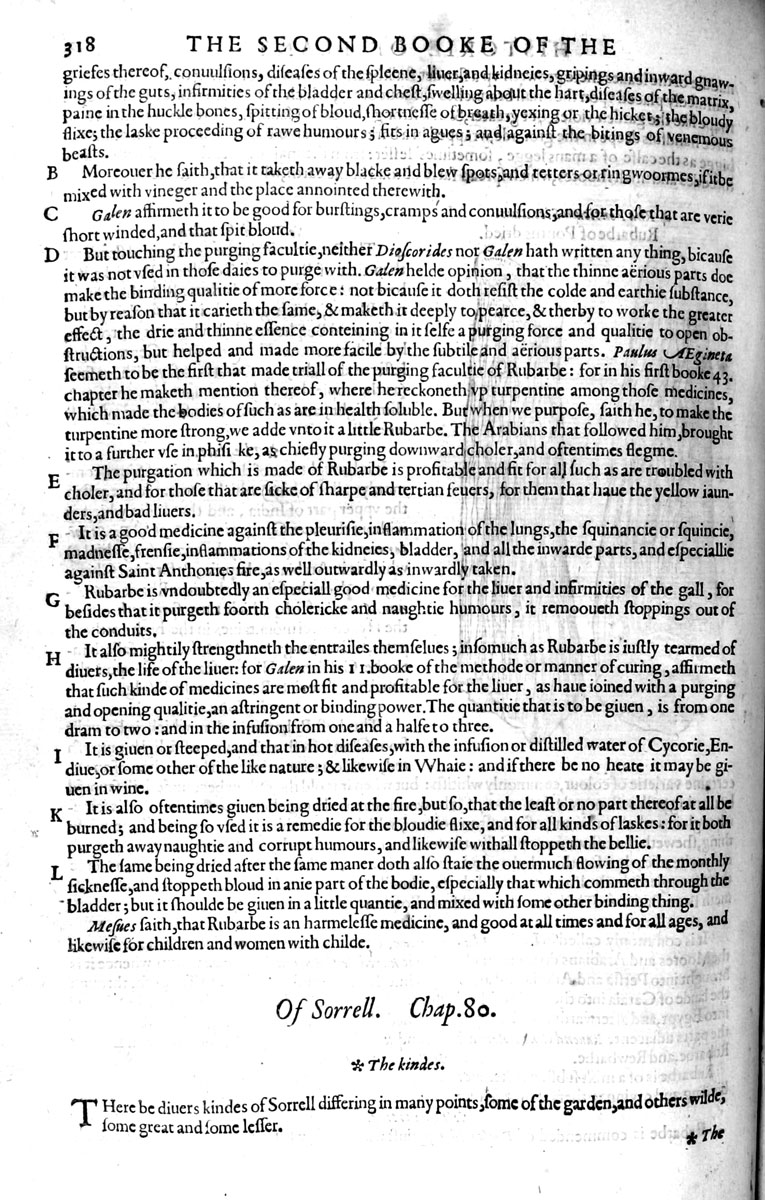 318 THE SECOND BOOKE OF THE
griefes thereof, conuulſions, diſeaſes of the ſpleene, liuer, and kidneies, gripings and inward gnaw-
ings of the guts, infirmities of the bladder and cheſt, ſwelling about the hart, diſeaſes of the matrix,
paine in the huckle bones, ſpitting of bloud, ſhortneſſe of breath, yexing or the hicket, the bloudy
flixe; the laske proceeding of rawe humours; fits in agues; and againſt the bitings of venemous
beaſts.
B Moreouer he ſaith, that it taketh away blacke and blew ſpots, and tetters or ringwoormes, if it be
mixed with vineger and the place annointed therewith.
C Galen affirmeth it to be good for burſtings, cramps and conuulſions, and for thoſe that are verie
ſhort winded, and that ſpit bloud.
D But touching the purging facultie, neither Dioſcorides nor Galen hath written any thing, bicauſe
it was not vſed in thoſe daies to purge with. Galen helde opinion, that the thinne aërious parts doe
make the binding qualitie of more force: not bicauſe it doth reſiſt the colde and earthie ſubſtance,
but by reaſon that it carieth the ſame, & maketh it deeply to pearce, & therby to worke the greater
effect, the drie and thinne eſſence conteining in it ſelfe a purging force and qualitie to open ob-
ſtructions, but helped and made more facile by the ſubtile and aërious parts. Paulus Ægineta
ſeemeth to be the firſt that made triall of the purging facultie of Rubarbe: for in his firſt booke 43.
chapter he maketh mention thereof, where he reckoneth vp turpentine among thoſe medicines,
which made the bodies of ſuch as are in health ſoluble. But when we purpoſe, ſaith he, to make the
turpentine more ſtrong, we adde vnto it a little Rubarbe. The Arabians that followed him, brought
it to a further vſe in phiſi ke, as chiefly purging downward choler, and oftentimes flegme.
E The purgation which is made of Rubarbe is profitable and fit for all ſuch as are troubled with
choler, and for thoſe that are ſicke of ſharpe and tertian feuers, for them that haue the yellow iaun-
ders, and bad liuers.
F It is a good medicine againſt the pleuriſie, inflammation of the lungs, the ſquinancie or ſquincie,
madneſſe, frenſie, inflammations of the kidneies, bladder, and all the inwarde parts, and eſpeciallie
againſt Saint Anthonies fire, as well outwardly as inwardly taken.
G Rubarbe is vndoubtedly an eſpeciall good medicine for the liuer and infirmities of the gall, for
beſides that it purgeth foorth cholericke and naughtie humours, it remooueth ſtoppings out of
the conduits.
H It alſo mightily ſtrengthneth the entrailes themſelues; inſomuch as Rubarbe is iuſtly tearmed of
diuers, the life of the liuer: for Galen in his 11. booke of the methode or manner of curing, affirmeth
that ſuch kinde of medicines are moſt fit and profitable for the liuer, as haue ioined with a purging
and opening qualitie, an aſtringent or binding power. The quantitie that is to be giuen, is from one
dram to two: and in the infuſion from one and a halfe to three.
I It is giuen or ſteeped, and that in hot diſeaſes, with the infuſion or diſtilled water of Cycorie, En-
diue, or ſome other of the like nature; & likewiſe in Whaie: and if there be no heate it may be gi-
uen in wine.
K It is alſo oftentimes giuen being dried at the fire, but ſo, that the leaſt or no part thereof at all be
burned; and being ſo vſed it is a remedie for the bloudie flixe, and for all kinds of laskes: for it both
purgeth away naughtie and corrupt humours, and likewiſe withall ſtoppeth the bellie.
L The ſame being dried after the ſame maner doth alſo ſtaie the ouermuch flowing of the monthly
ſickneſſe, and ſtoppeth bloud in anie part of the bodie, eſpecially that which commeth through the
bladder; but it ſhoulde be giuen in a little quantie, and mixed with ſome other binding thing.
Meſues ſaith, that Rubarbe is an harmeleſſe medicine, and good at all times and for all ages, and
likewiſe for children and women with childe.
Of Sorrell. Chap. 80.
* The kindes.
THere be diuers kindes of Sorrell differing in many points, ſome of the garden, and others wilde,
ſome great and ſome leſſer.
* The